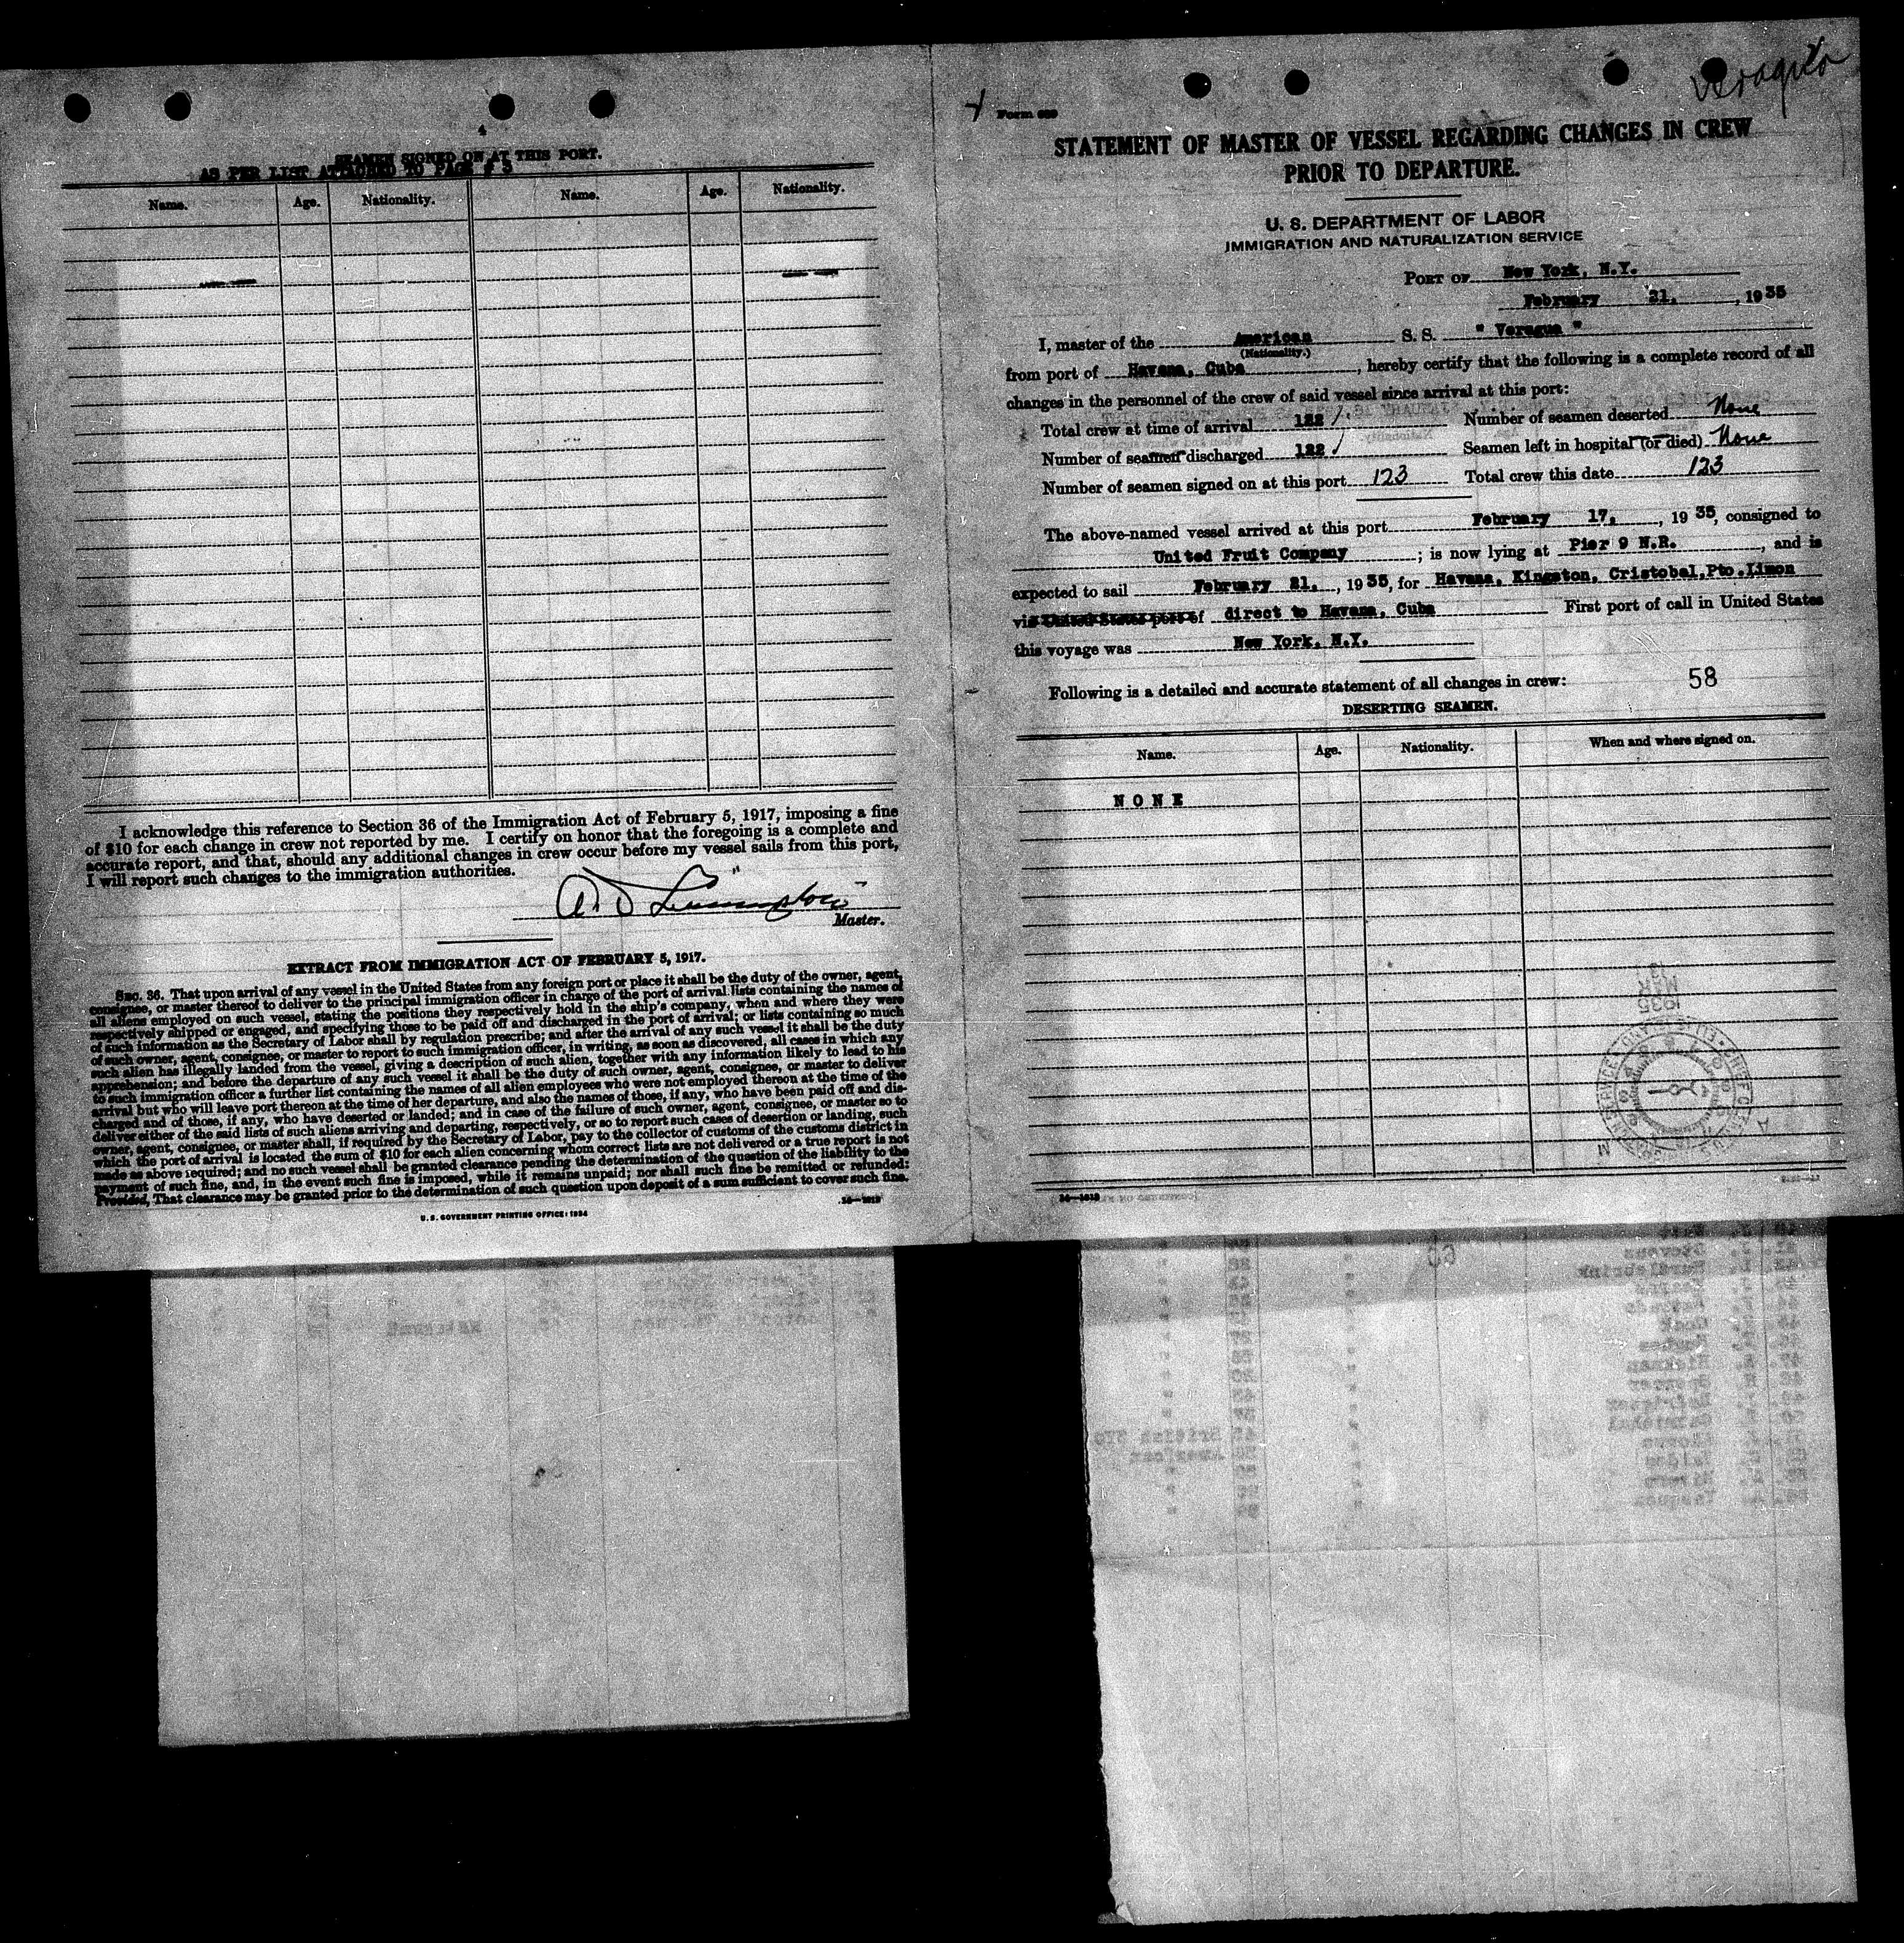 4
SEAMEN SIGNED ON AT THIS PORT.
AS PER LIST ATTACHED TO PAGE # 3
Name. Age. Nationality. Name. Age. Nationality.
I acknowledge this reference to Section 36 of the Immigration Act of February 5, 1917, imposing a fine
of $10 for each change in crew not reported by me. I certify on honor that the foregoing is a complete and
accurate report, and that, should any additional changes in crew occur before my vessel sails from this port,
I will report such changes to the immigration authorities.
Master.
EXTRACT FROM IMMIGRATION ACT OF FEBRUARY 5, 1917.
SEC. 36. That upon arrival of any vessel in the United States from any foreign port or place it shall be the duty of the owner, agent,
consignee, or master thereof to deliver to the principal immigration officer in charge of the port of arrival lists containing the names of
all aliens employed on such vessel, stating the positions they respectively hold in the ship's company, when and where they were
respectively shipped or engaged, and specifying those to be paid off and discharged in the port of arrival; or lists containing so much
of such information as the Secretary of Labor shall by regulation prescribe; and after the arrival of any such vessel it shall be the duty
of such owner, agent, consignee, or master to report to such immigration officer, in writing, as soon as discovered, all cases in which any
such alien has illegally landed from the vessel, giving a description of such alien, together with any information likely to lead to his
apprehension; and before the departure of any such vessel it shall be the duty of such owner, agent, consignee, or master to deliver
to such immigration officer a further list containing the names of all alien employees who were not employed thereon at the time of the
arrival but who will leave port thereon at the time of her departure, and also the names of those, if any, who have been paid off and dis-
charged and of those, if any, who have deserted or landed; and in case of the failure of such owner, agent, consignee, or master so to
deliver either of the said lists of such aliens arriving and departing, respectively, or so to report such cases of desertion or landing, such
owner, agent, consignee, or master shall, if required by the Secretary of Labor, pay to the collector of customs of the customs district in
which the port of arrival is located the sum of $10 for each alien concerning whom correct lists are not delivered or a true report is not
made as above required; and no such vessel shall be granted clearance pending the determination of the question of the liability to the
payment of such fine, and, in the event such fine is imposed, while it remains unpaid; nor shall such fine be remitted or refunded:
Provided, That clearance may be granted prior to the determination of such question upon deposit of a sum sufficient to cover such fine.
U. S. GOVERNMENT PRINTING OFFICE: 1934
Form 689
STATEMENT OF MASTER OF VESSEL REGARDING CHANGES IN CREW
PRIOR TO DEPARTURE.
U. S. DEPARTMENT OF LABOR
IMMIGRATION AND NATURALIZATION SERVICE
PORT OF New York, N.Y.
February 21, , 1935
I, master of the American S. S. " Veragua "
(Nationality.)
from port of Havana, Cuba , hereby certify that the following is a complete record of all
changes in the personnel of the crew of said vessel since arrival at this port:
Total crew at time of arrival 122 Number of seamen deserted None
Number of seamen discharged 122 Seamen left in hospital (or died) None
Number of seamen signed on at this port 123 Total crew this date 123
The above-named vessel arrived at this port February 17, , 1935, consigned to
United Fruit Company ; is now lying at Pier 9 N.R. , and is
expected to sail February 21, , 1935, for Havana, Kingston, Cristobal, Pto. Limon
via United States port of direct to Havana, Cuba First port of call in United States
this voyage was New York, N.Y.
Following is a detailed and accurate statement of all changes in crew: 58
DESERTING SEAMEN.
Name. Age. Nationality. When and where signed on.
NONE